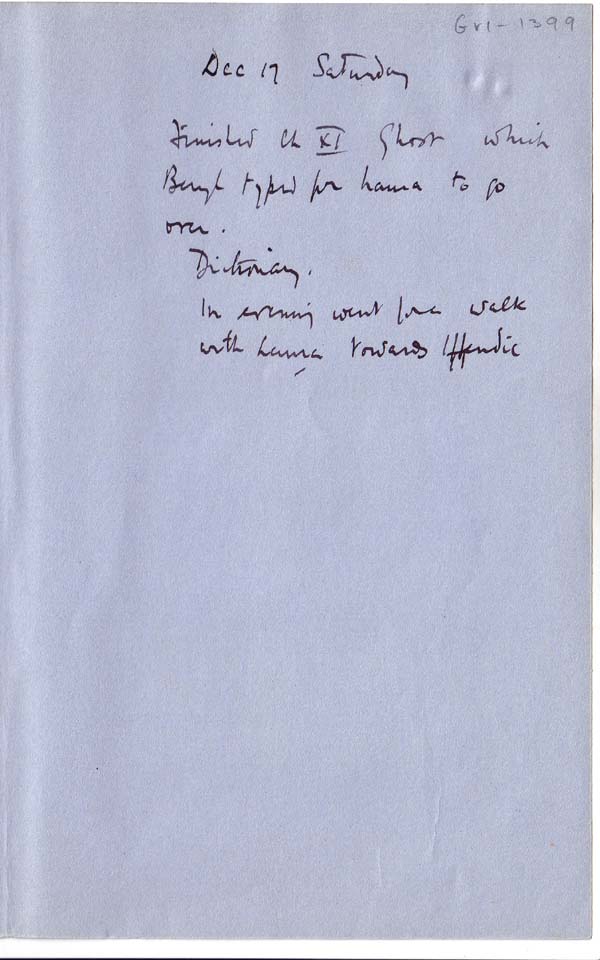 Gri-1399
Dec 17 Saturday
Finished Ch XI Ghost which
Beryl typed for Laura to go
over.
Dictionary.
In evening went for a walk
with Laura towards Iffendic